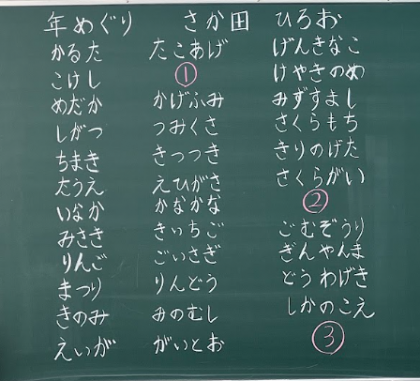 年めぐり さか田 ひろお
かるた たこあげ げんきなこ
こけし ① けやきのめ
めだか かげふみ みずすまし
しがつ つみくさ さくらもち
ちまき きつつき きりのげた
たうえ えひがさ さくらがい
いなか かなかな ②
みさき きいちご ごむぞうり
りんご ごいさぎ ぎんやんま
まつり りんどう どうわげき
きのみ みのむし しかのこえ
えいが がいとお ③